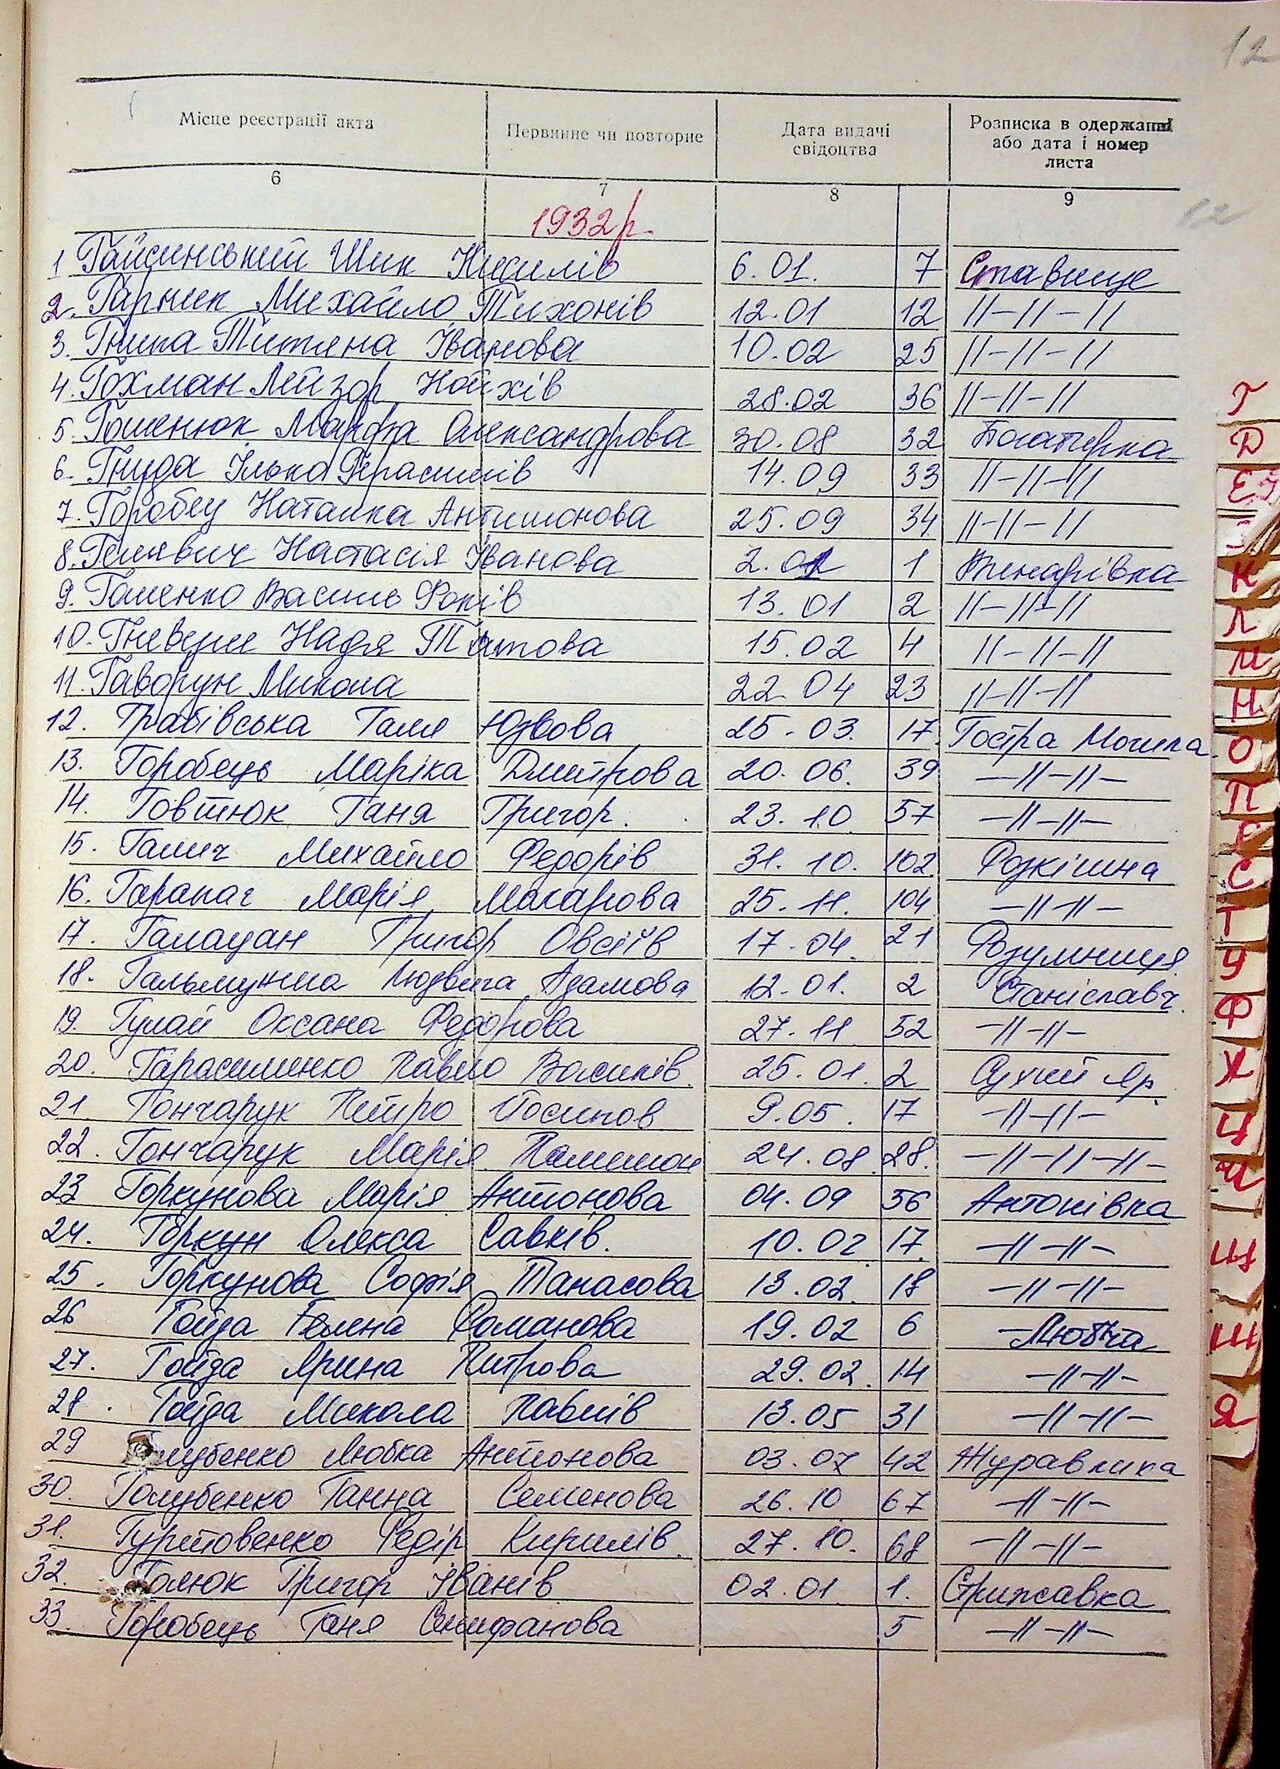 12
Місце реєстрації акта Первинне чи повторне Дата видачі свідоцтва Розписка в одержанні або дата і номер листа
6 7 8 9
12
1932 р.
1 Гайсинський Шик 6.01. 7 Ставище
2. Гарник Михайло Тихонів 12.01 12 //-//-//
3. Гнипа Титяна Іванова 10.02 25 //-//-//
4. Гохман Лейзор 28.02 36 //-//-//
5. Гошенюк Марфа Олександрова 30.08 32 Богатирка
6. Гнида Ілько Герасимів 14.09 33 //-//-//
7. Горобец Наталка Антимонова 25.09 34 //-//-//
8. Настасія Іванова 2.01 1 Винарівка
9. Гоменко Василь Фоків 13.01 2 //-//-//
10. Надя Титова 15.02 4 //-//-//
11. Гаворун Микола 22.04 23 //-//-//
12. Грабівська Галя Юзвова 25.03. 17 Гостра Могила
13. Горобець Маріка Дмитрова 20.06. 39 -//-//-
14. Говтюк Ганя Григор. 23.10 57 -//-//-
15. Галич Михайло Федорів 31.10. 102 Розкішна
16. Гарапач Марія Макарова 25.11. 104 -//-//-
17. Галацан Григор Овсіїв 17.04. 21 Розумниця
18. Людвига Адамова 12.01. 2 Станіславч.
19. Гулай Оксана Федорова 27.11 52 -//-//-
20. Гарасименко Павло Василів. 25.01. 2 Сухий Яр.
21 Гончарук Петро Йосипов 9.05. 17 -//-//-
22. Гончарук Марія Палимон 24.08 28. -//-//-//-
23 Горкунова Марія Антонова 04.09 56 Антонівка
24. Горкун Олекса Савків. 10.02 17 -//-//-
25. Горкунова Софія Танасова 13.02. 18 -//-//-
26 Гойда Гелена Романова 19.02 6 Любча
27. Гойда Ярина Питрова 29.02. 14 -//-//-
28. Гойда Микола Павлів 13.05 31 -//-//-
29 Голубенко Любка Антонова 03.07 42 Журавлиха
30. Голубенко Ганна Семенова 26.10 67 -//-//-
31. Гуртовенко Федір Кирилів. 27.10. 68 -//-//-
32. Голюк Григор Іванів 02.01 1. Стрижавка
33. Горобець Ганя Олифанова 5 -//-//-
Г
Д
Е
К
Л
М
Н
О
П
С
Т
У
Ф
Х
Ц
Ч
Щ
Ш
Я